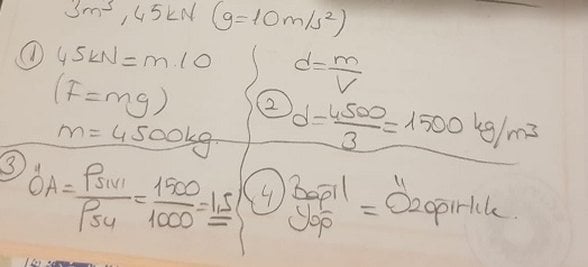 3m³, 45kN (g=10m/s²)
① 45kN=m.10
(F=mg)
m=4500kg
d=m/V
② d=4500/3=1500 kg/m³
③ ÖA=Psıvı/Psu=1500/1000=1,5
④ Bağıl
Yoğ = Özağırlık.